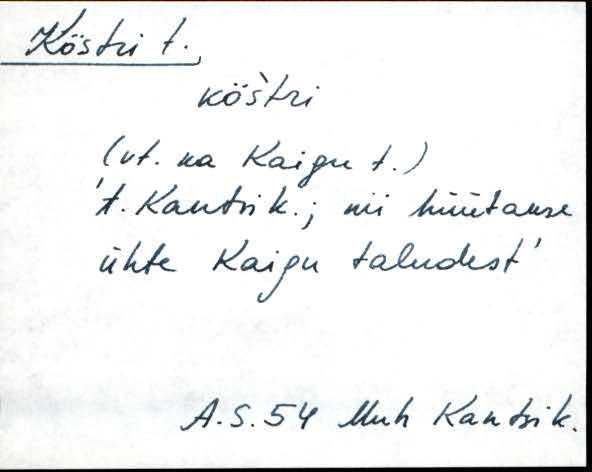 Köstri t.
köštri
(vt. ka Kaigu t.)
't. Kantsik.; nii hüütakse
ühte Kaigu taludest'
A.S.54 Muh Kantsik.